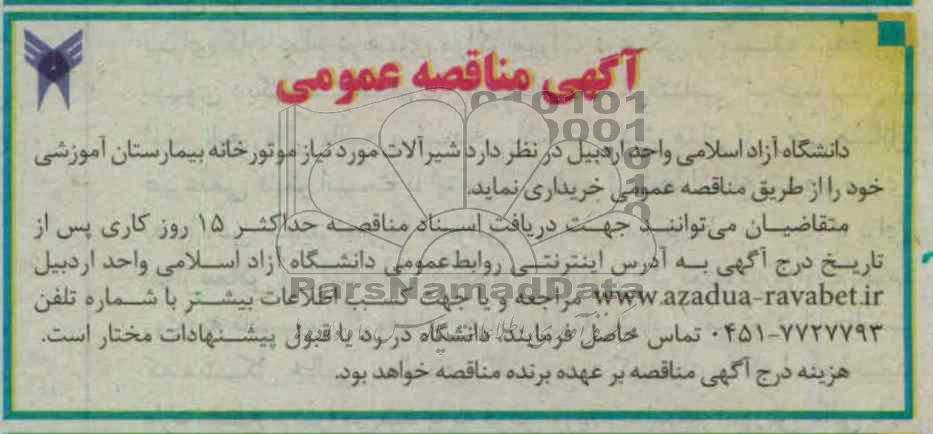 آگهی مناقصه عمومی
دانشگاه آزاد اسلامی واحد اردبیل در نظر دارد شیرآلات مورد نیاز موتورخانه بیمارستان آموزشی
خود را از طریق مناقصه عمومی خریداری نماید.
متقاضیان می‌توانند جهت دریافت اسناد مناقصه حداکثر ۱۵ روز کاری پس از
تاریخ درج آگهی به آدرس اینترنتی روابط عمومی دانشگاه آزاد اسلامی واحد اردبیل
www.azadua-ravabet.ir مراجعه و یا جهت کسب اطلاعات بیشتر با شماره تلفن
۰۴۵۱-۷۷۲۷۷۹۳ تماس حاصل فرمایند. دانشگاه در رد یا قبول پیشنهادات مختار است.
هزینه درج آگهی مناقصه بر عهده برنده مناقصه خواهد بود.
ParsNamadData